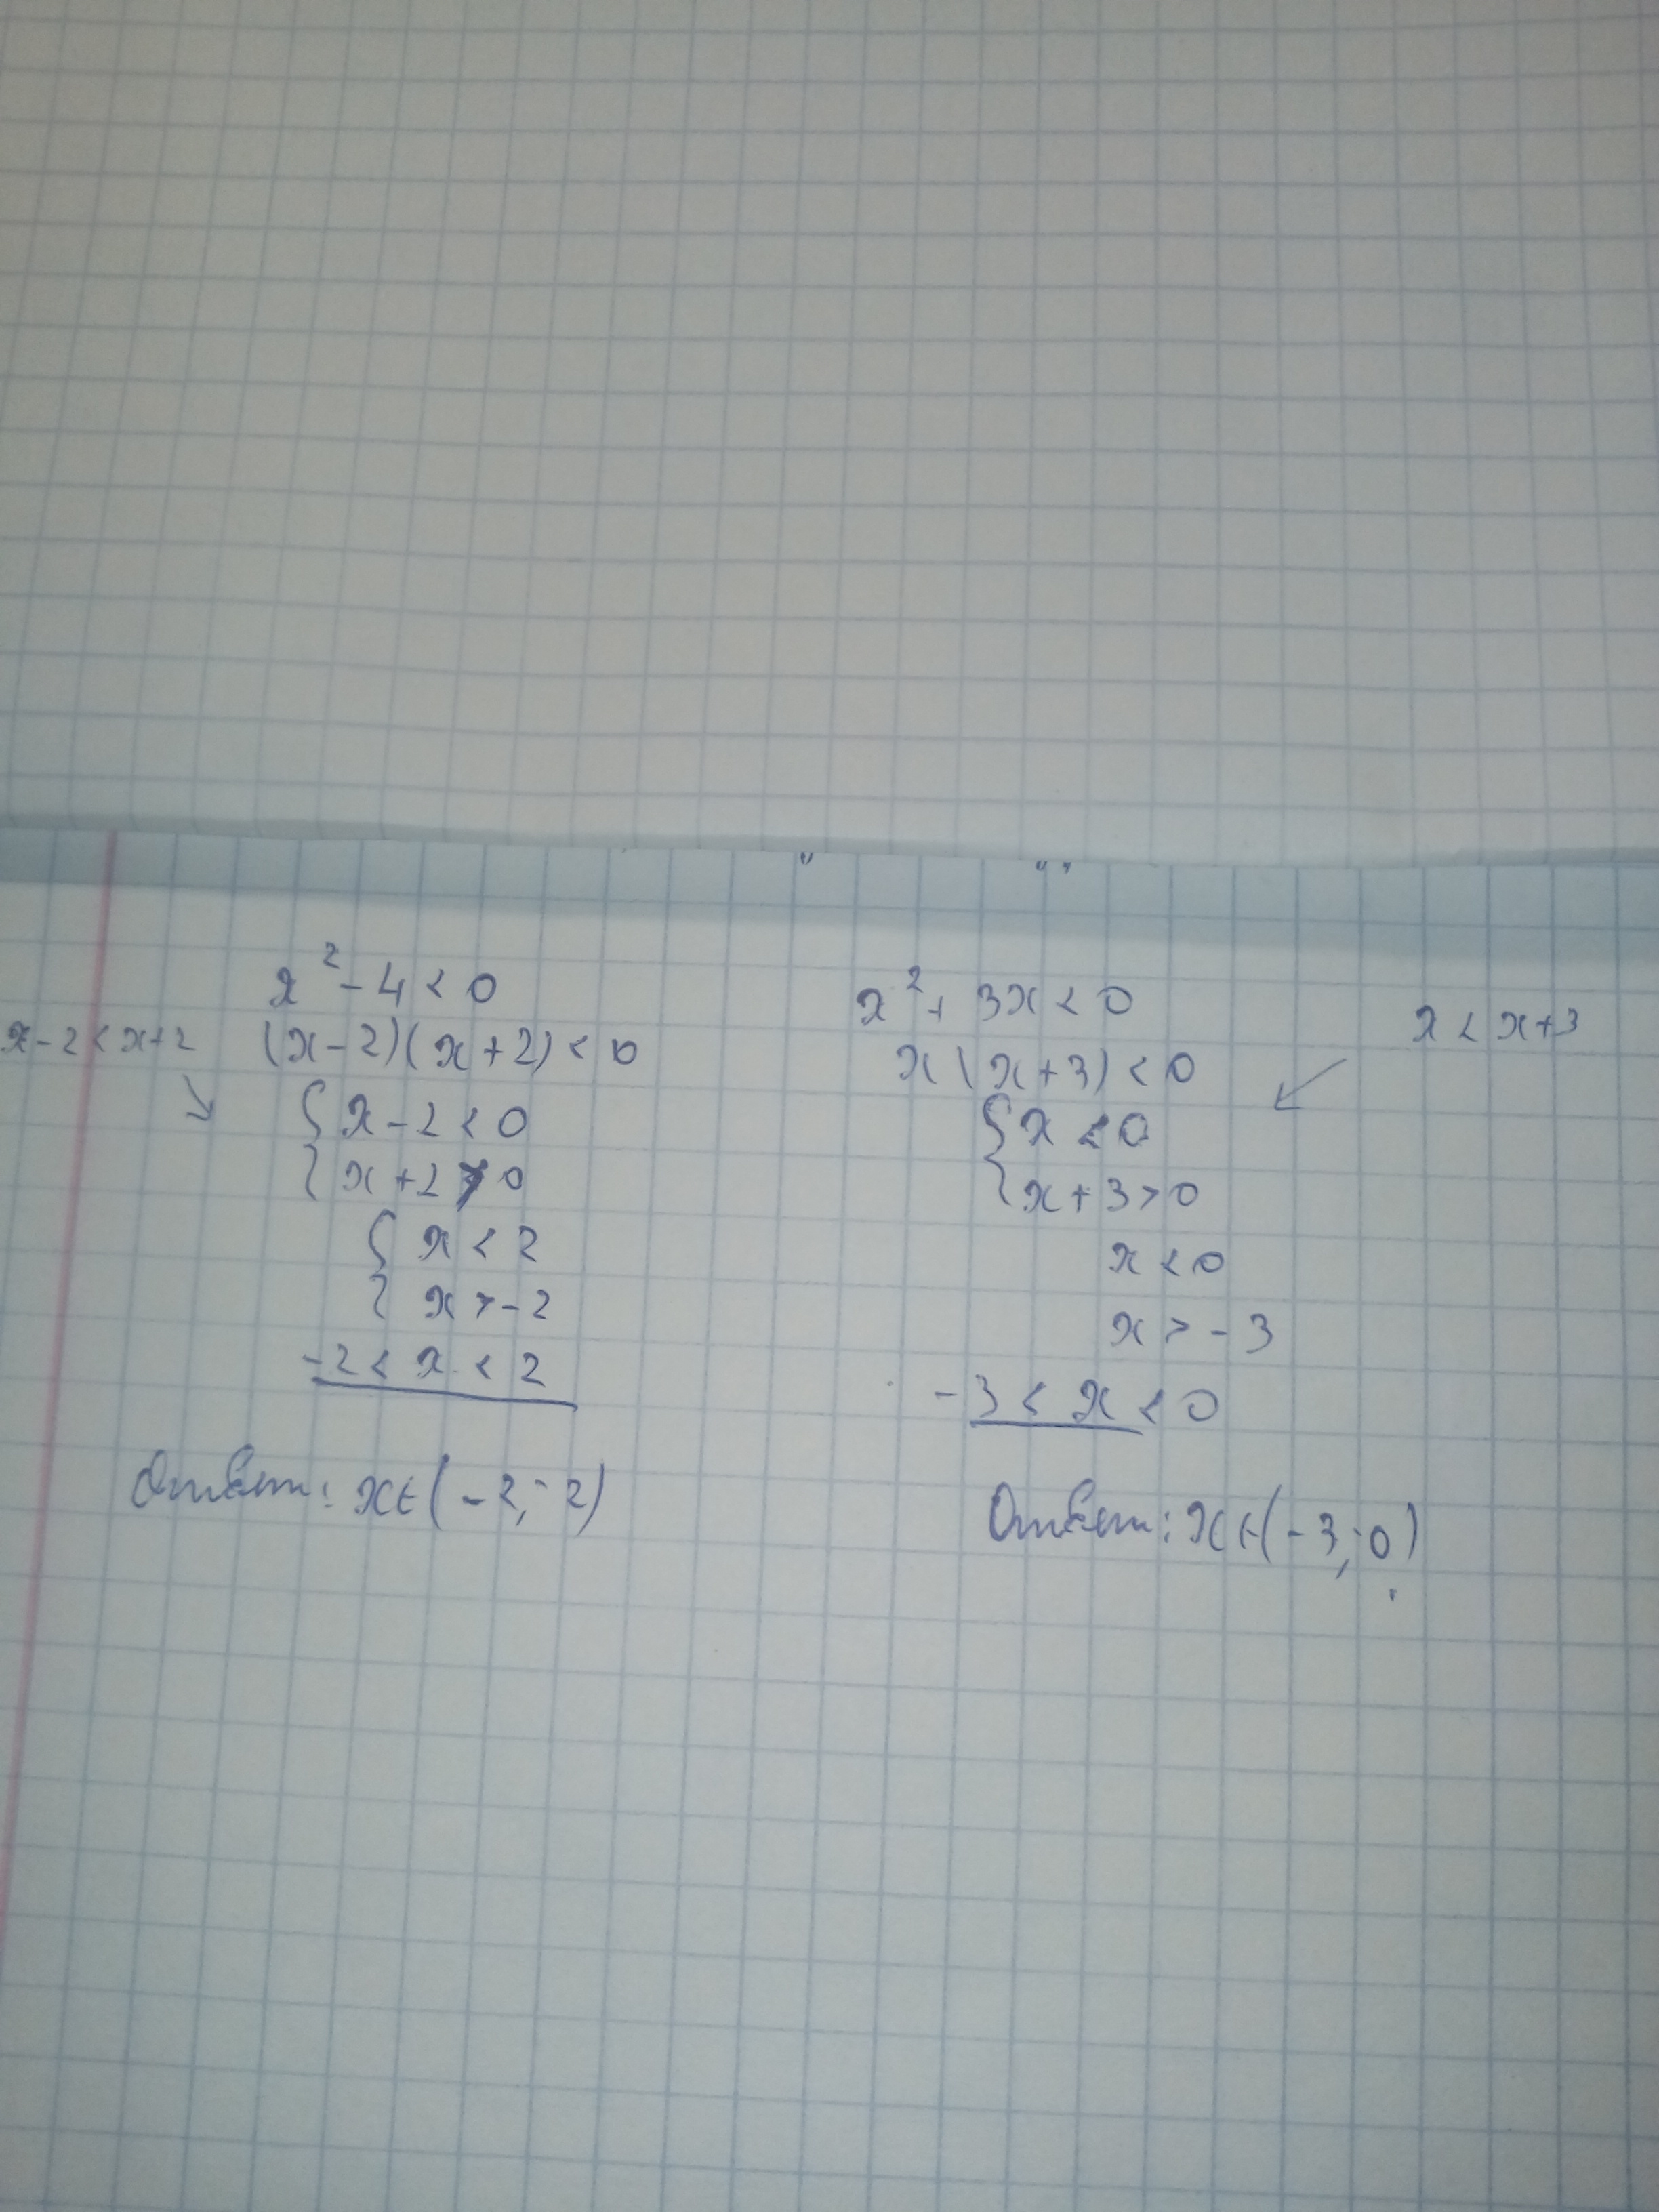 x² - 4 < 0
x - 2 < x + 2
(x - 2)(x + 2) < 0
{ x - 2 < 0
{ x + 2 > 0
{ x < 2
{ x > -2
-2 < x < 2
Ответ: x ∈ (-2; 2)
x² + 3x < 0
x < x + 3
x(x + 3) < 0
{ x < 0
{ x + 3 > 0
x < 0
x > -3
-3 < x < 0
Ответ: x ∈ (-3; 0)